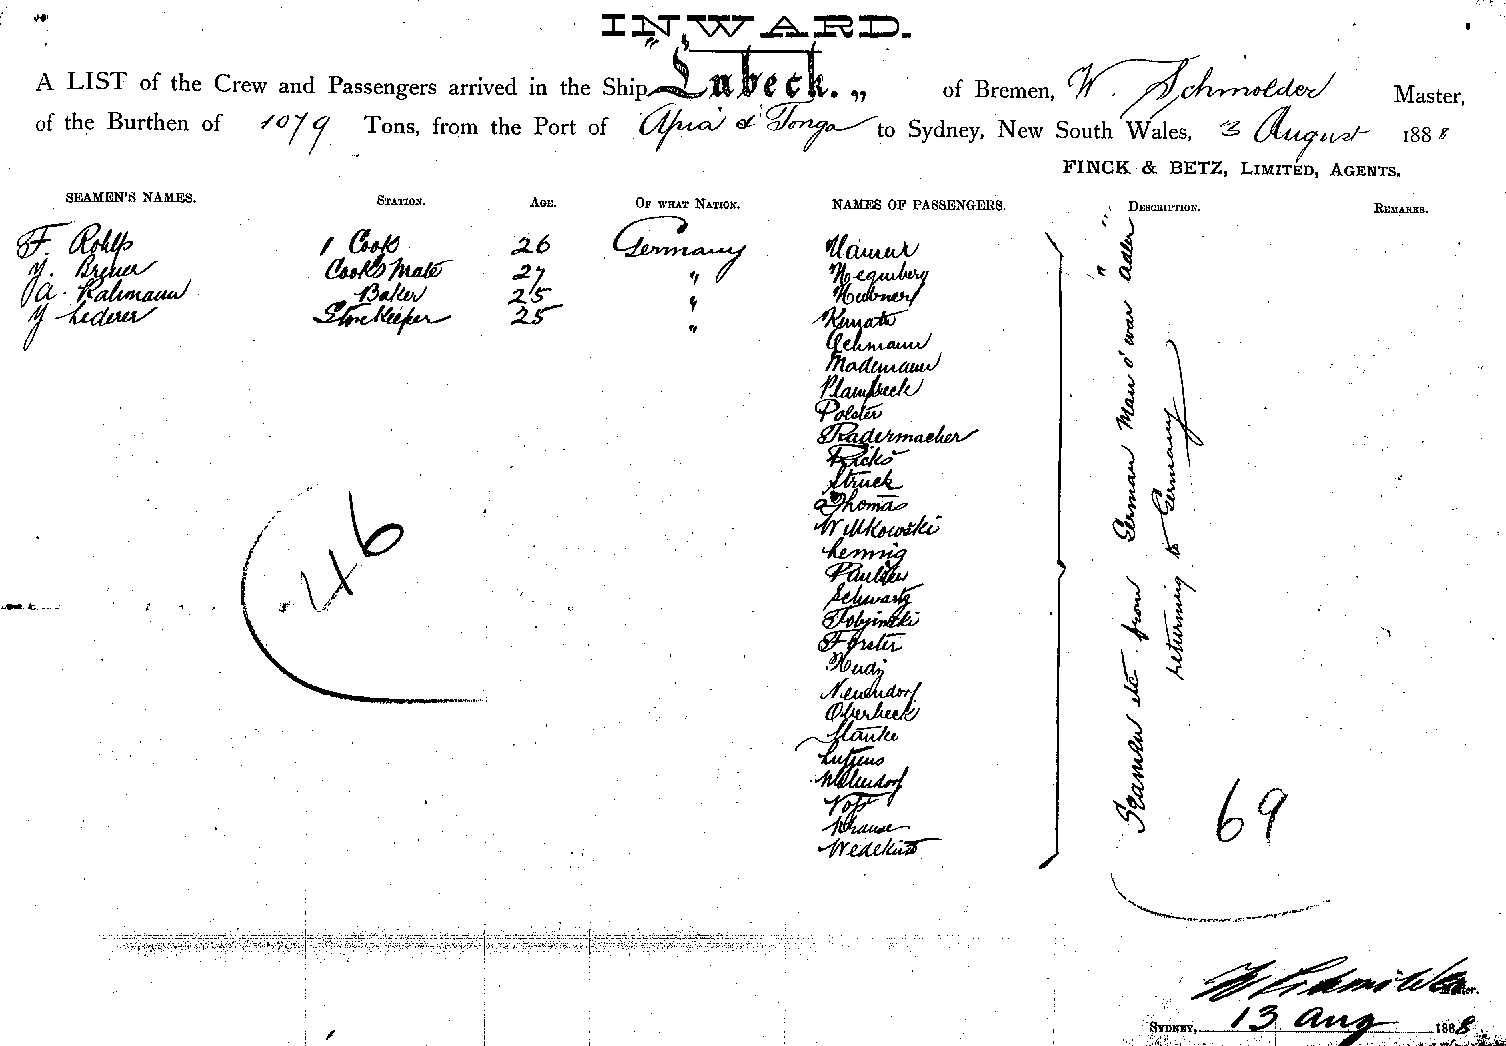 INWARD.
A LIST of the Crew and Passengers arrived in the Ship "Lubeck." of Bremen, W. Schmolder Master,
of the Burthen of 1079 Tons, from the Port of Apia & Tonga to Sydney, New South Wales, 3 August 1888
FINCK & BETZ, LIMITED, AGENTS.
SEAMEN'S NAMES. STATION. AGE. OF WHAT NATION. NAMES OF PASSENGERS. DESCRIPTION. REMARKS.
F. Rohlfs 1 Cook 26 Germany
Cooks Mate 27 "
A. Rahmann Baker 25 "
Lederer Storekeeper 25 "
Oehmann
Mademann
Plambeck
Polster
Radermacher
Ricks
Struck
Thomas
Willkowski
Hennig
Paulsen
Schwartz
Förster
Neuendorf
Overbeck
Lutjens
Voss
Krause
Wedekind
Seamen etc from German Man o' war "Adler"
returning to Germany
46
69
W Schmölder
SYDNEY, 13 Aug 1888